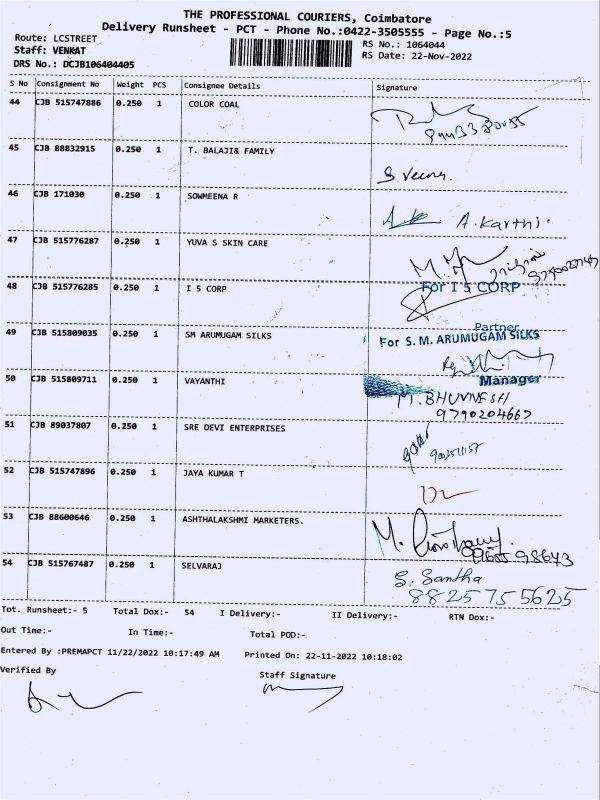 THE PROFESSIONAL COURIERS, Coimbatore
Delivery Runsheet - PCT - Phone No.:0422-3505555 - Page No.:5
Route: LCSTREET
RS No.: 1064044
Staff: VENKAT
RS Date: 22-Nov-2022
DRS No.: DCJB106404405
S No Consignment No Weight PCS Consignee Details Signature
44 CJB 515747886 0.250 1 COLOR COAL
45 CJB 88832915 0.250 1 T. BALAJI& FAMILY
S Veena.
46 CJB 171030 0.250 1 SOWMEENA R
A. Karthi.
47 CJB 515776287 0.250 1 YUVA S SKIN CARE
48 CJB 515776285 0.250 1 I 5 CORP
For I 5 CORP
Partner
49 CJB 515809035 0.250 1 SM ARUMUGAM SILKS
For S. M. ARUMUGAM SILKS
Manager
50 CJB 515809711 0.250 1 VAYANTHI
M. BHUVNESH
9790204667
51 CJB 89037807 0.250 1 SRE DEVI ENTERPRISES
52 CJB 515747896 0.250 1 JAYA KUMAR T
53 CJB 88600646 0.250 1 ASHTHALAKSHMI MARKETERS.
54 CJB 515767487 0.250 1 SELVARAJ
S. Santha
8825755625
Tot. Runsheet:- 5 Total Dox:- 54 I Delivery:- II Delivery:- RTN Dox:-
Out Time:- In Time:- Total POD:-
Entered By :PREMAPCT 11/22/2022 10:17:49 AM Printed On: 22-11-2022 10:18:02
Verified By Staff Signature